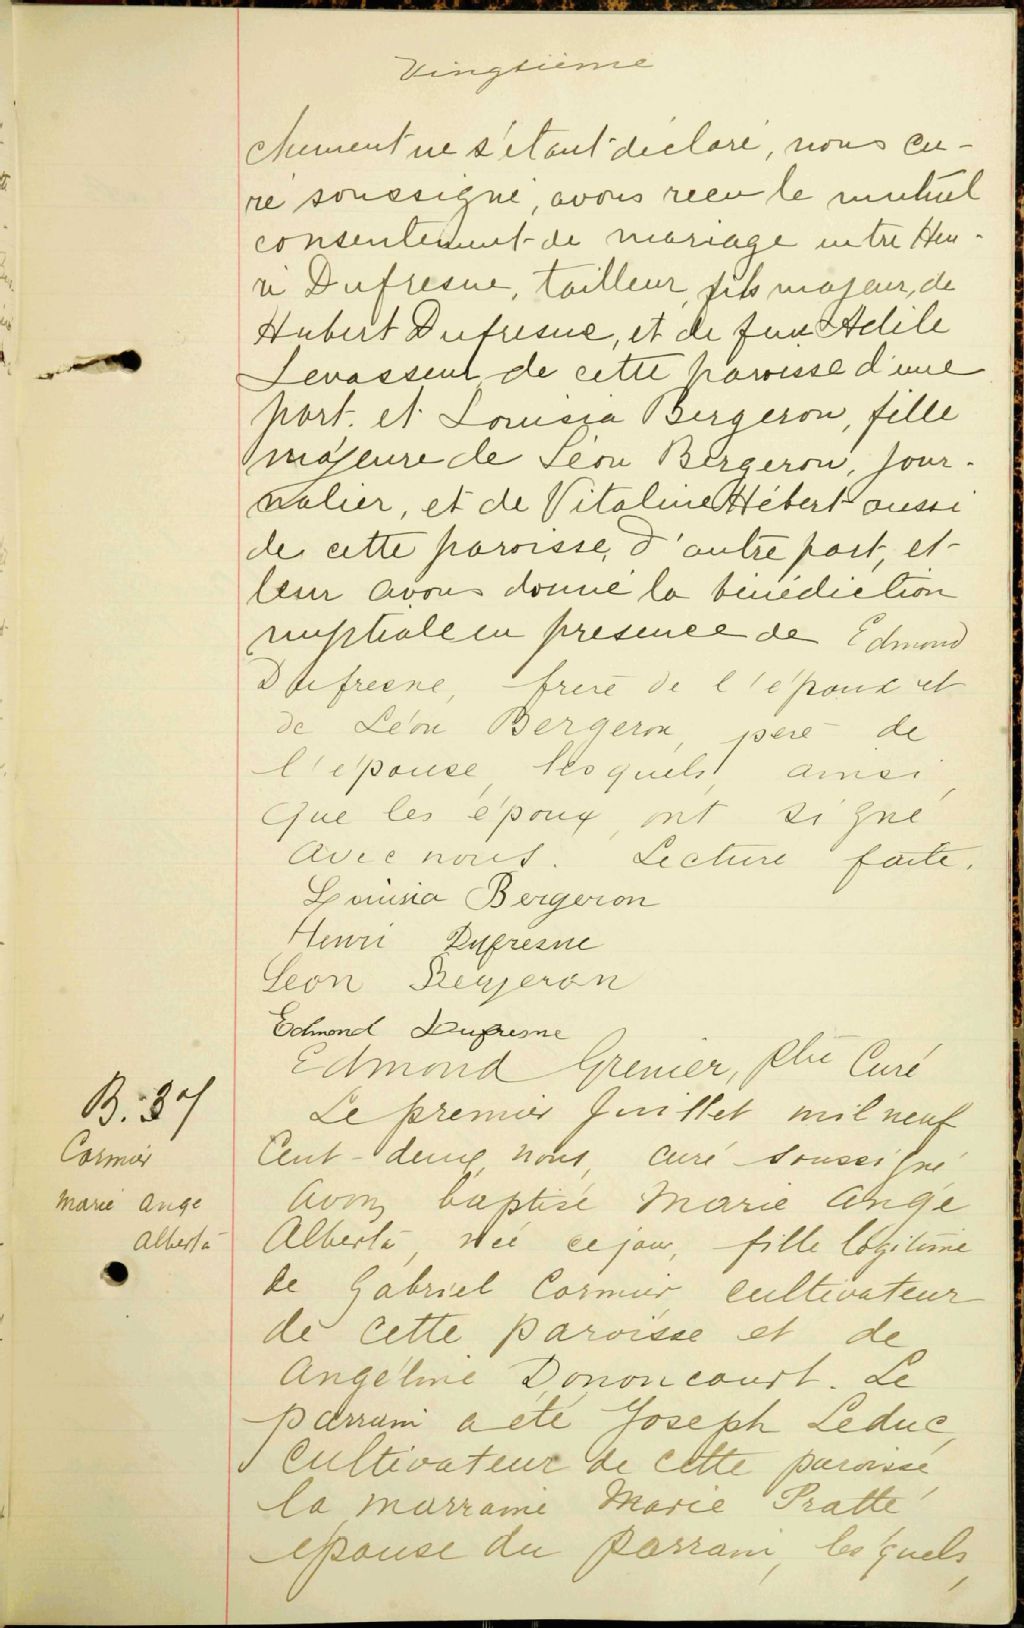 Vingtième
chement ne s'étant déclaré, nous cu-
ré soussigné, avons reçu le mutuel
consentement de mariage entre Hen-
ri Dufresne, tailleur, fils majeur, de
Hubert Dufresne, et de feue Adèle
Levasseur, de cette paroisse d'une
part. et Louisia Bergeron, fille
majeure de Léon Bergeron, jour-
nalier, et de Vitaline Hébert aussi
de cette paroisse, d'autre part, et
leur avons donné la bénédiction
nuptiale en présence de Edmond
Dufresne, frère de l'époux et
de Léon Bergeron, père de
l'épouse, lesquels, ainsi
que les époux, ont signé
avec nous. Lecture faite.
Louisia Bergeron
Henri Dufresne
Léon Bergeron
Edmond Dufresne
Edmond Grenier, Ptre Curé
B. 37
Cormier
Marie Ange
Alberta
Le premier Juillet mil neuf
Cent-deux, nous, curé soussigné
avons baptisé Marie Ange
Alberta, née ce jour, fille légitime
de Gabriel Cormier cultivateur
de cette paroisse et de
Angéline Dononcourt. Le
parrain a été Joseph Leduc,
cultivateur de cette paroisse,
la marraine Marie Pratte
épouse du parrain, lesquels,